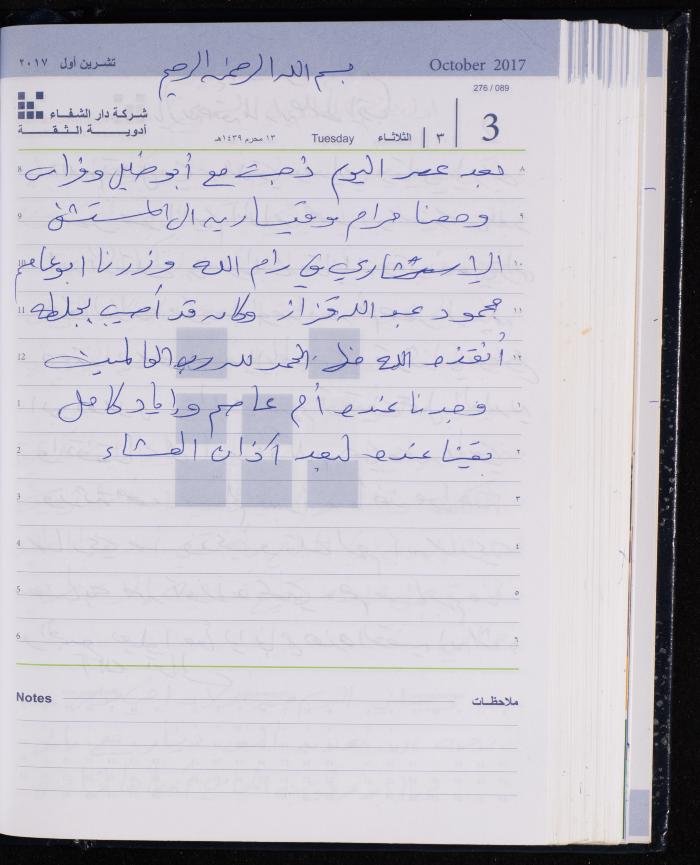 تشرين أول ٢٠١٧
October 2017
بسم الله الرحمن الرحيم
276 / 089
شركة دار الشفاء
أدوية الثقة
١٣ محرم ١٤٣٩هـ
Tuesday الثلاثاء ٣ 3
8 بعد عصر اليوم ذهبت مع أبو خليل وفراس ٨
9 ومعنا مرام وقيسارية الى المستشفى ٩
10 الإستشاري في رام الله وزرنا ابو عاصم ١٠
11 محمود عبد الله قزاز وكان قد أصيب بجلطة ١١
12 أنقذه الله منها الحمد لله رب العالمين ١٢
1 وجدنا عنده أم عاصم وإياد كامل ١
2 بقينا عنده لبعد آذان العشاء ٢
3 ٣
4 ٤
5 ٥
6 ٦
Notes ملاحظات